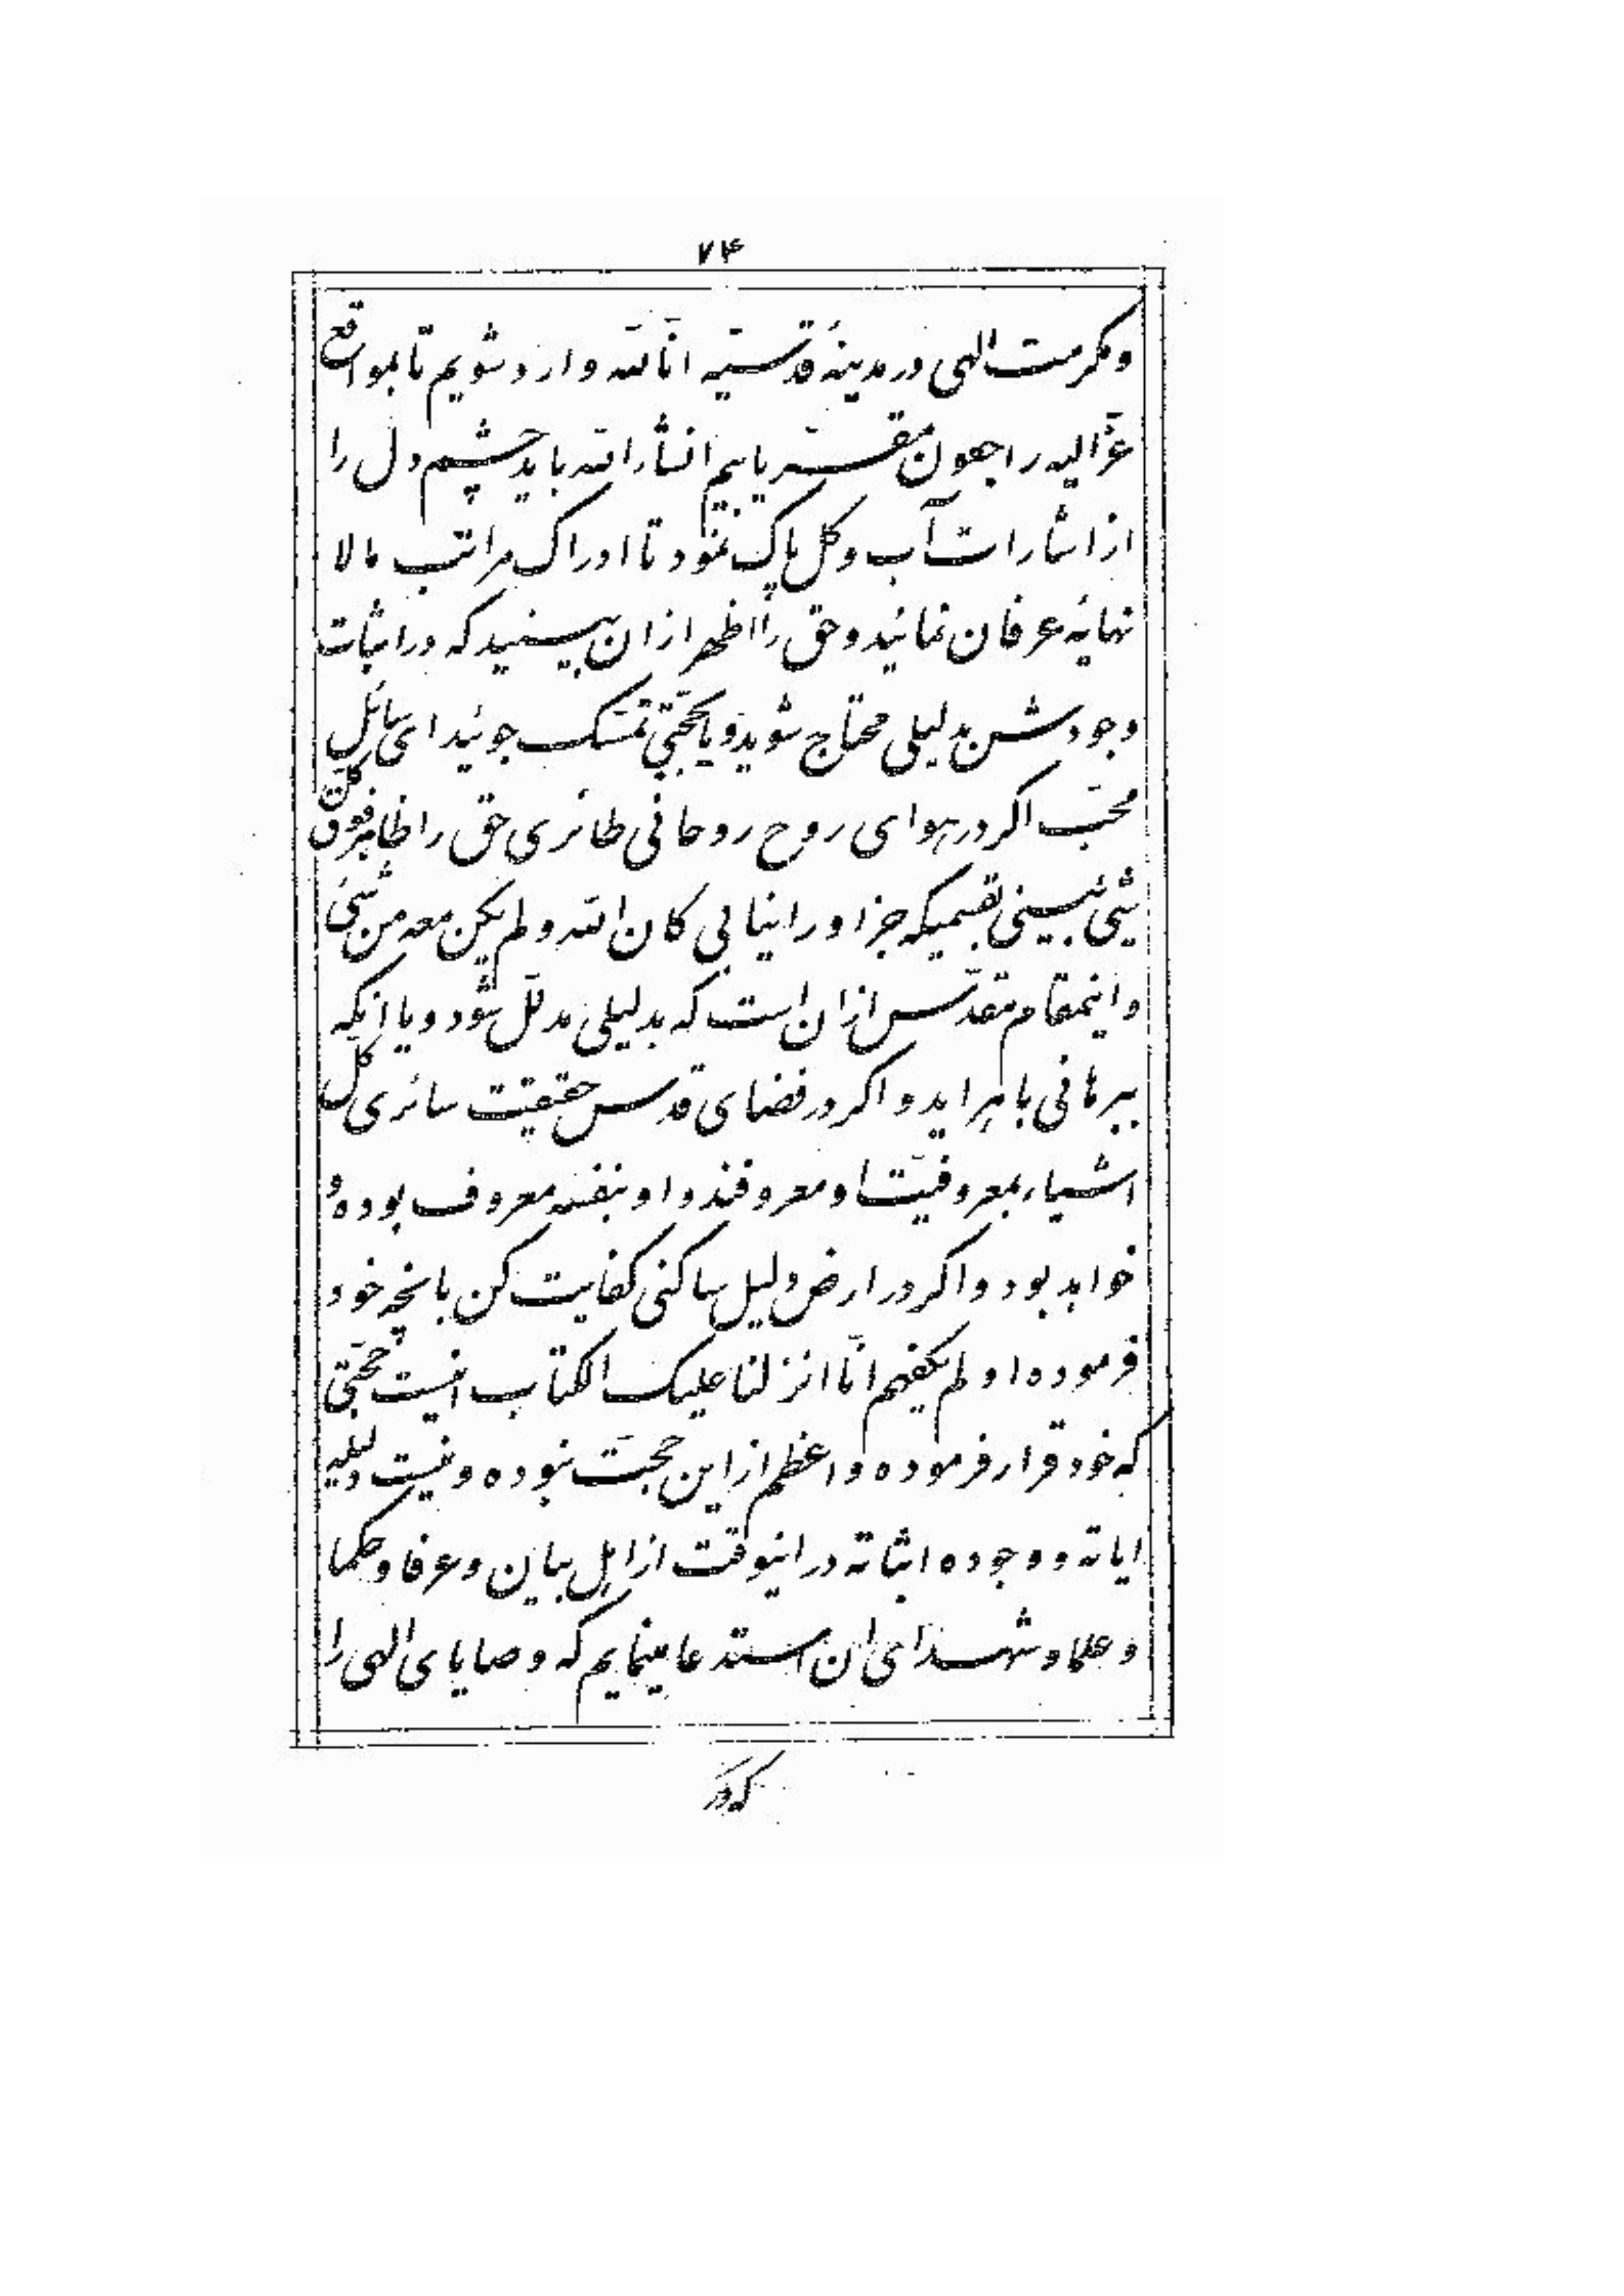 ۷۴
و مکرمت الهی در مدینهٔ قدسیّه انّا للّه وارد شویم تا بمواقع
عزّ الیه راجعون مقرّ یابیم انشاء اللّه باید چشم دل را
از اشارات آب و کل پاک نمود تا ادراک مراتب مالا
نهایهٔ عرفان نمائید و حق را اظهر از ان ببینید که در اثبات
وجودش بدلیلی محتاج شوید و یا بحجّتی تمسّک جوئید ای سائل
محبّ اکر در هوای روح روحانی طائری حق را ظاهر فوق کلّ
شیٔ ببینی بقسمیکه جز او را نیابی کان اللّه و لم یکن معه من شیٔ
و اینمقام مقدّس از ان است که بدلیلی مدلّل شود و یا انکه
ببرهانی باهر اید و اکر در فضای قدس حقیقت سائری کل
اشیاء بمعروفیّت او معروفند و او بنفسه معروف بوده و
خواهد بود و اکر در ارض دلیل ساکنی کفایت کن بانچه خود
فرموده او لم یکفهم انّا انزلنا علیک الکتاب اینست حجّتی
که خود قرار فرموده و اعظم از این حجّت نبوده و نیست دلیله
ایاته و وجوده اثباته در اینوقت از اهل بیان و عرفا و حکما
و علما و شهدای ان استدعا مینمایم که وصایای الهی را
که در